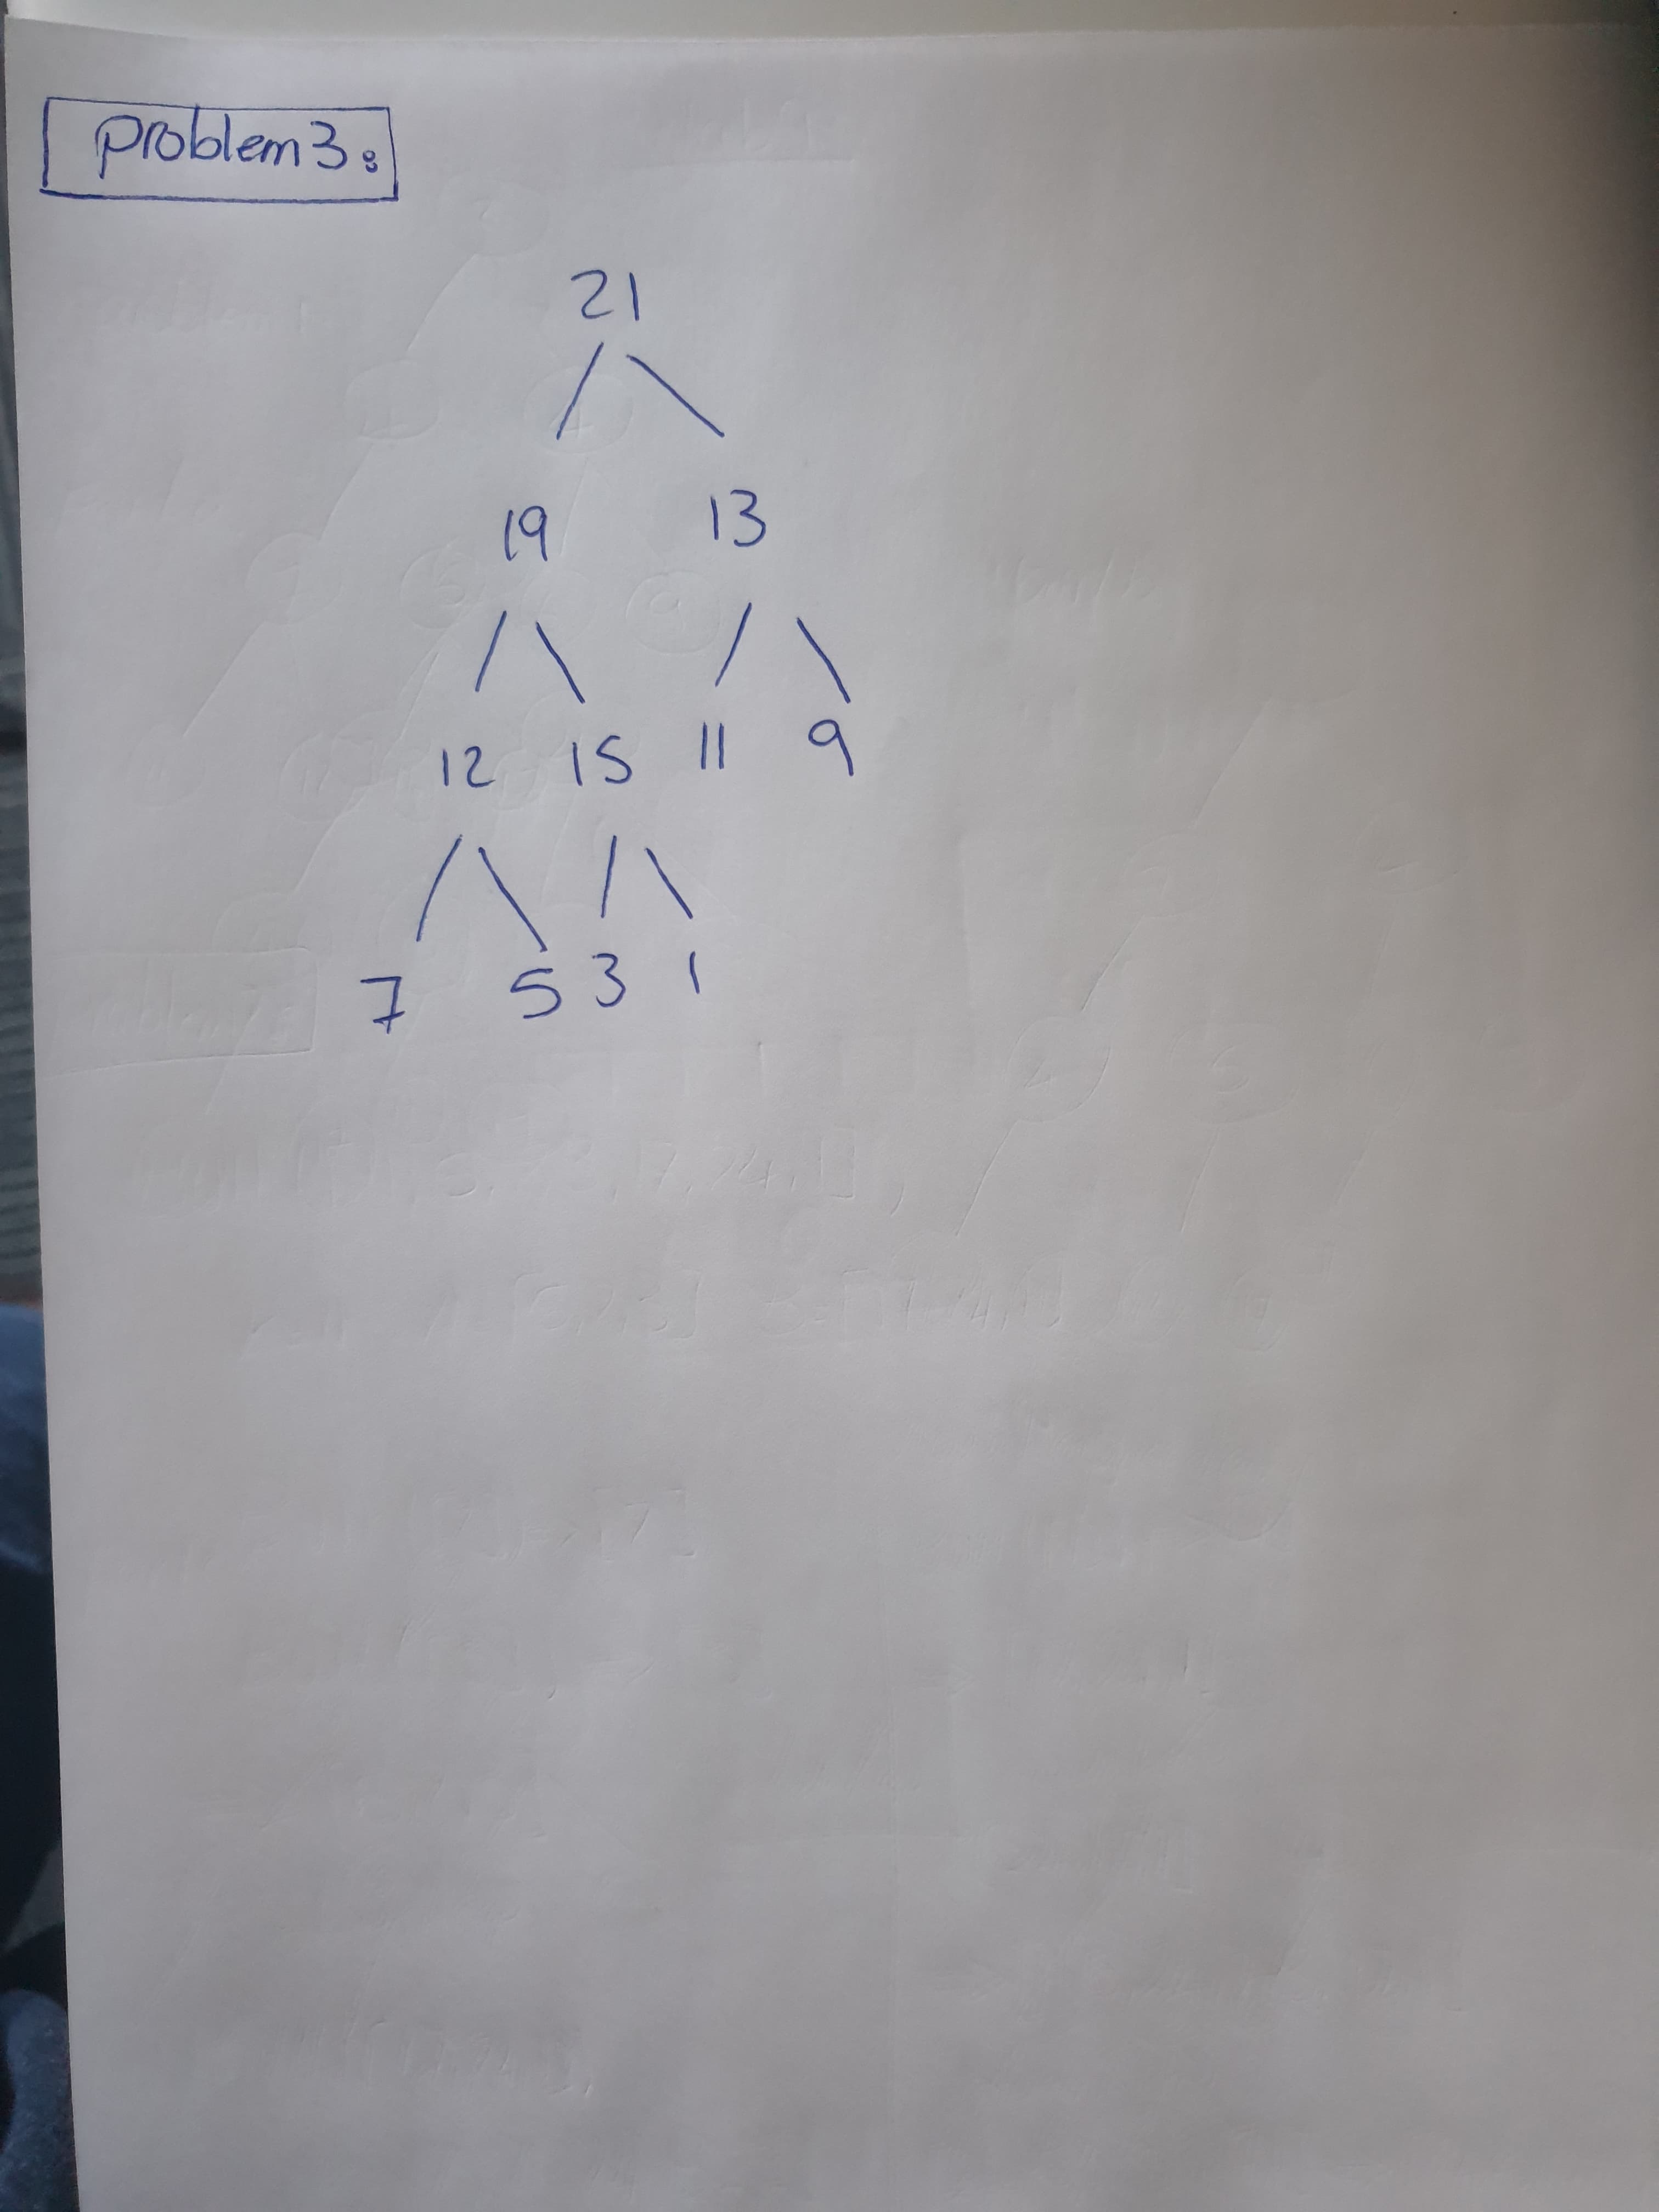 Problem 3:
21
19 13
12 15 11 9
7 5 3 1